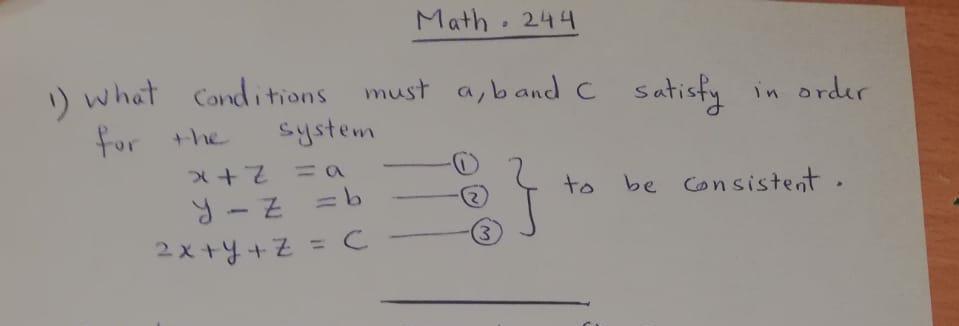 Math. 244
1) What Conditions must a, b and C satisfy in order
for the system
x + z = a —— ①
y - z = b —— ② } to be Consistent.
2x + y + z = C —— ③